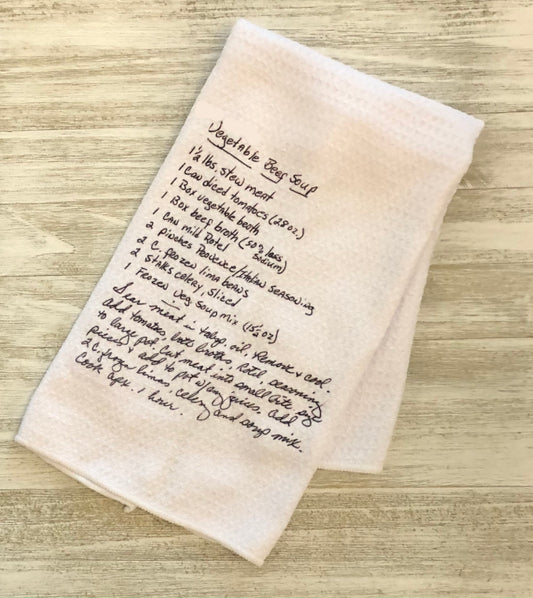 Vegetable Beef Soup
1½ lbs. stew meat
1 can diced tomatoes (28 oz.)
1 Box vegetable broth
1 Box beef broth (50% less sodium)
1 can mild Rotel
2 pinches Provence/Italian seasoning
2 c. frozen lima beans
2 stalks celery, sliced
1 Frozen Veg Soup mix (15½ oz)
Sear meat in oil, Remove & cool.
add tomatoes, both broths, Rotel, seasoning
to large pot. Cut meat into small bite size
pieces & add to pot w/any juices. Add
2 c. frozen limas, celery and soup mix.
Cook 1 hour.